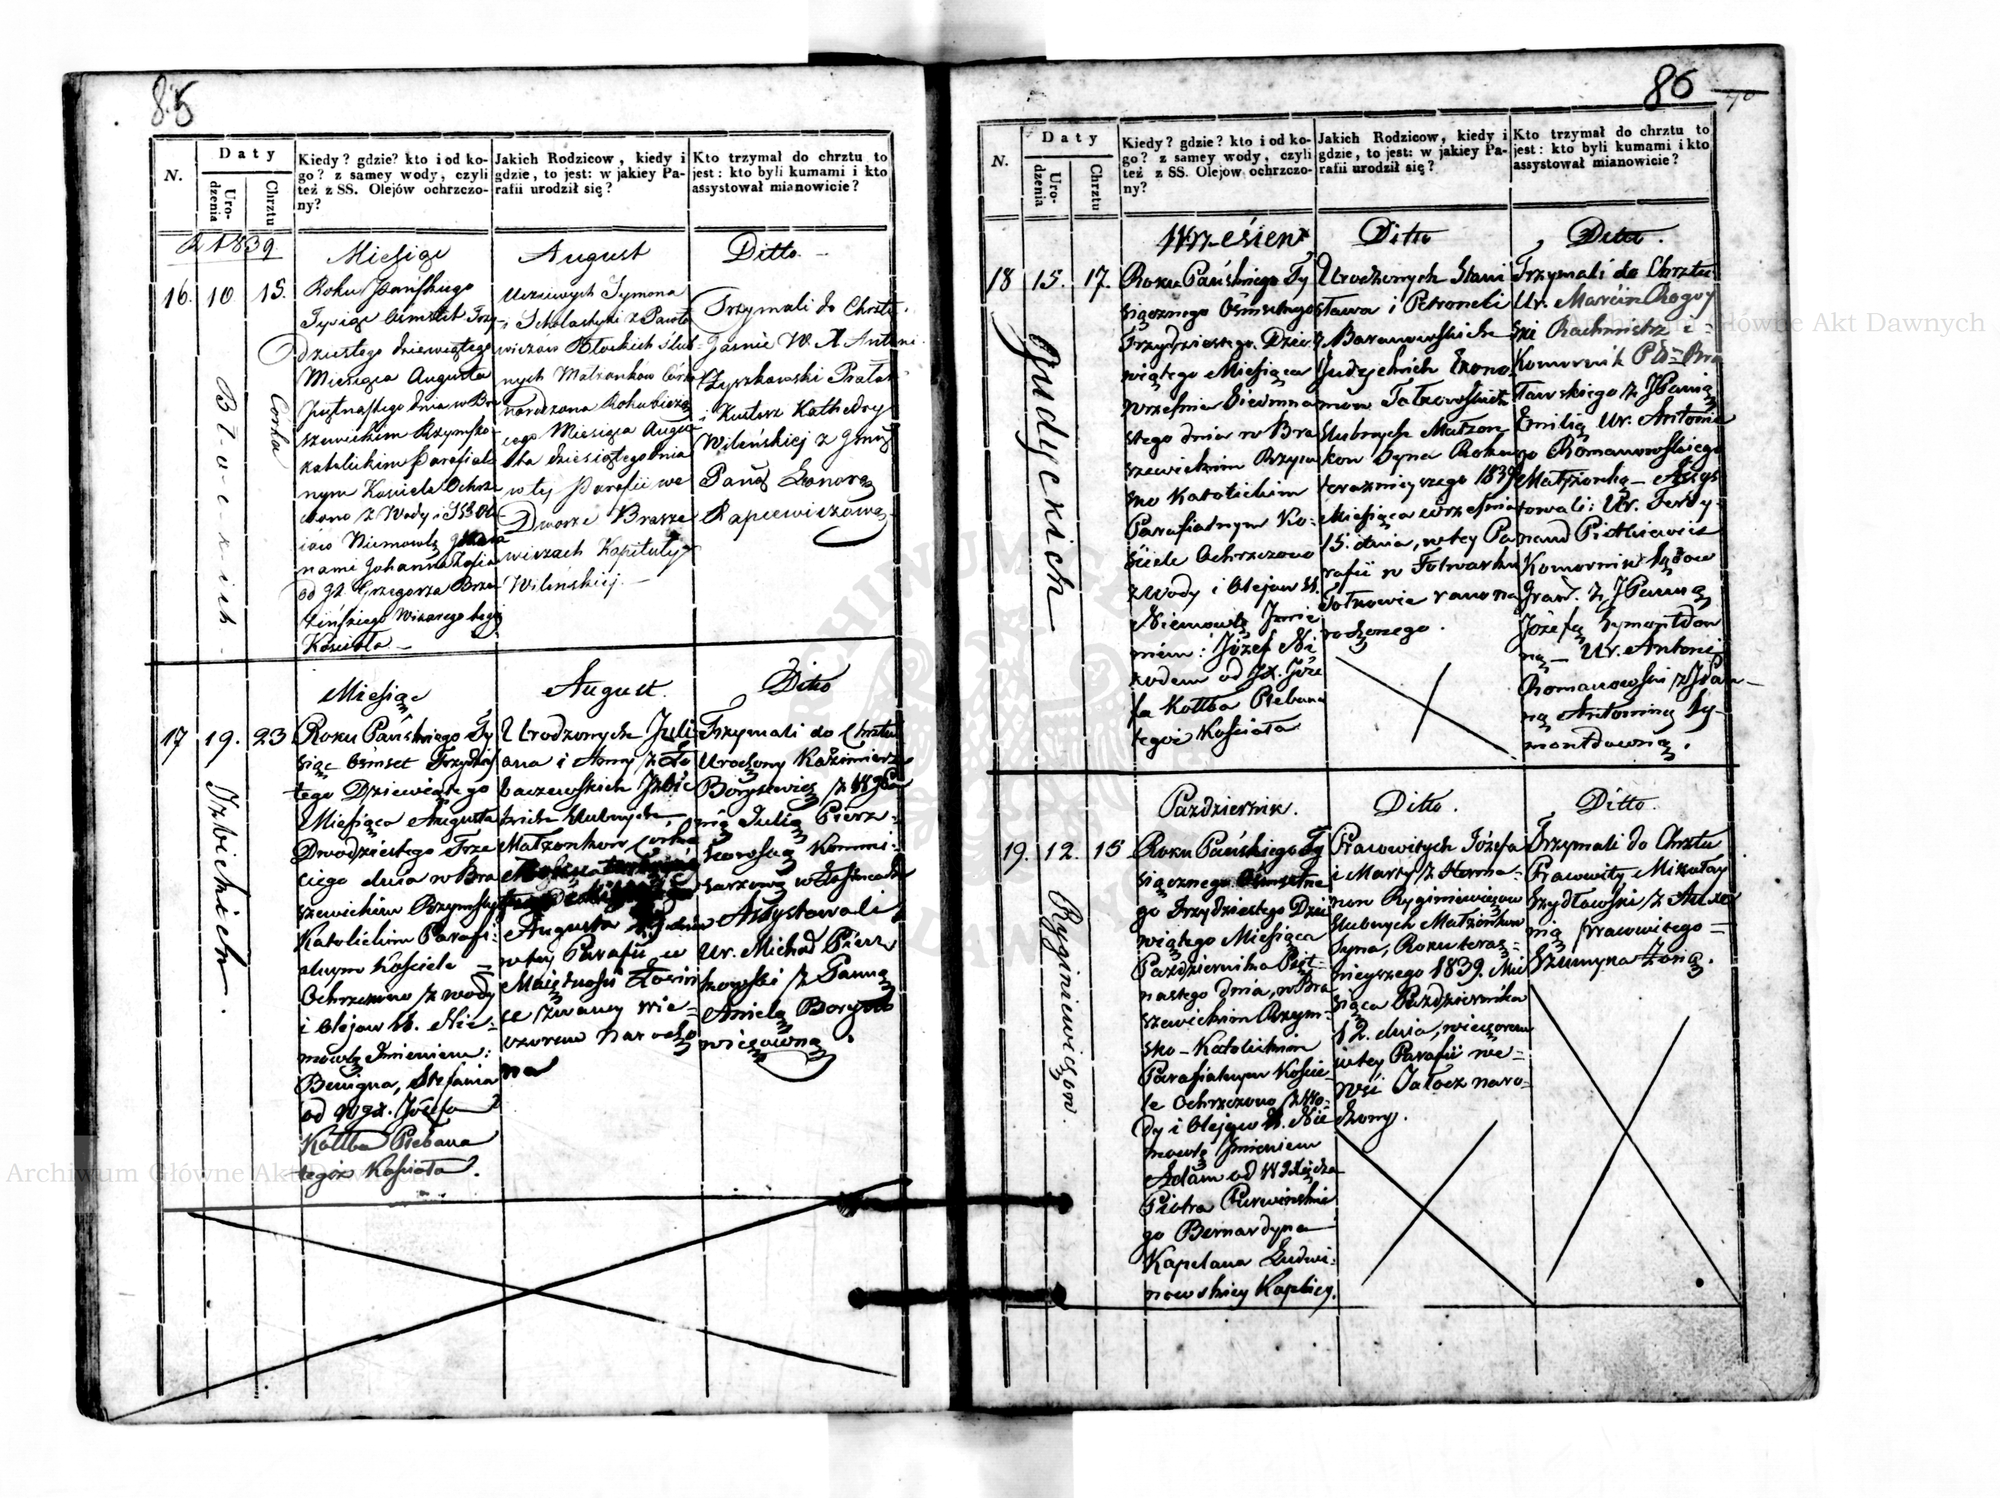 85
N.
Daty
Uro-
dzenia
Chrztu
Kiedy? gdzie? kto i od ko-
go? z samey wody, czyli
też z SS. Olejów ochrzczo-
ny?
Jakich Rodzicow, kiedy i
gdzie, to jest: w jakiey Pa-
rafii urodził się?
Kto trzymał do chrztu to
jest: kto byli kumami i kto
assystował mianowicie?
1839
Miesiąc
August
Ditto
16.
10
15.
Błockich
Córka
Roku Pańskiego
Tysiąc Ośmset Trzy-
dziestego dziewiątego
Miesiąca Augusta
Piętnastego dnia w Bra
szewickim Rzymsko-
katolickim Parafial-
nym Kościele Ochrz
czono z Wody i SS Ol
iow Niemowlę
nami Johanna Zofia
od JX. Grzegorza Brze
zińskiego Wikarego tegoż
Kościoła
Uczciwych Symona
i Scholastyki z Pawło
wiczow Błockich ślub-
nych Małżonków Córka
narodzona Roku bieżą
cego Miesiąca Augu
sta dziesiątego dnia
w tej Parafii we
Dworze Brasze
wiczach Kapituły
Wileńskiej.
Trzymali do Chrztu
Jaśnie W. X Antoni
Żyszkowski Prałat
i Kustosz Kathedry
Wileńskiej z
Panią Leonorą
Rapcewiczową
Miesiąc
August.
Ditto
17
19.
23
Izbickich.
Roku Pańskiego Ty
siąc Ośmset Trzydzies
tego Dziewiątego
Miesiąca Augusta
Dwodziestego Trze
ciego dnia w Bra
szewickim Rzymsko
Katolickim Parafi-
alnym Kościele
Ochrzczono z wody
i Olejow SS. Nie-
mowlę Imieniem:
Benigna, Stefania
od WJX. Józefa
Kotłba Plebana
tegóż Kościoła.
Urodzonych Juli
ana i Anny z
baczewskich Izbic
kich ślubnych
Małżonków Córka
Augusta 19 dnia
w tey Parafii w
Maiętności
se zwaney wie-
czorem narodzo
na
Trzymali do Chrztu
Urodzony Kazimierz
Borysewicz z WJPa
nią Julią Pierz-
chowską Kommi-
sarzową
Assystowali
Ur. Michał Pierz
chowski z Panną
Anielą Boryse
wiczowną.
86
N.
Daty
Uro-
dzenia
Chrztu
Kiedy? gdzie? kto i od ko-
go? z samey wody, czyli
też z SS. Olejów ochrzczo-
ny?
Jakich Rodzicow, kiedy i
gdzie, to jest: w jakiey Pa-
rafii urodził się?
Kto trzymał do chrztu to
jest: kto byli kumami i kto
assystował mianowicie?
Wrzesień
Ditto
Ditto.
18
15.
17.
Judyckich
Roku Pańskiego Ty
siącznego Ośmsetnego
Trzydziestego Dzie
wiątego Miesiąca
Września Siedmna
stego dnia w Bra
szewickim Rzym
sko Katolickim
Parafialnym Ko-
ściele Ochrzczono
z Wody i Olejow SS.
Niemowlę Imie
niem: Józef Ni
kodem od JX. Józe
fa Kotłba Plebana
tegoż Kościoła
Urodzonych Stani
sława i Petroneli
z Baranowskich
Judyckich Ekono
mow Tołkowskich
ślubnych Małżon
kow Syna Roku
teraznieyszego 1839
Miesiąca września
15. dnia, w tey Pa
rafii w Folwarku
Tołkowie rano na
rodzonego.
Trzymali do Chrztu
Ur. Marcin Rogoy
ski Rachmistrz i
Komornik
z JPanią
Emilią Ur. Antonie
go Romanowskiego
Małżonką - Assys
towali: Ur. Ferdy-
nand Pietkiewicz
Komornik Sądow
Gran. z JPanną
Józefą Symontdow
ną - Ur. Antoni
Romanowski z JPan
ną Antoniną Sy-
montdowną.
Październik.
Ditto.
Ditto.
19.
12.
15
Ryginiewiczow.
Roku Pańskiego Ty
siącznego Ośmsetne
go Trzydziestego Dzie
wiątego Miesiąca
Października Pięt-
nastego dnia, w Bra
szewickim Rzym-
sko-Katolickim
Parafialnym Koście-
le Ochrzczono z Wo-
dy i Olejow SS. Nie
mowlę Imieniem
Adam od WJXiędza
Piotra
go Bernardyna
Kapelana Ludwi-
nowskiey Kaplicy.
Pracowitych Józefa
i Marty z Herma-
now Ryginiewiczow
ślubnych Małżonkow
Syna, Roku teraz-
nieyszego 1839. Mie
siąca Października
12. dnia, wieczorem
w tey Parafii we-
wsi naro-
dzony.
Trzymali do Chrztu
Pracowity Mikołay
Szydłowski z Anto
nią Pracowitego
Szumyna Żoną.
Archiwum Główne Akt Dawnych
Archiwum Główne Akt Dawnych